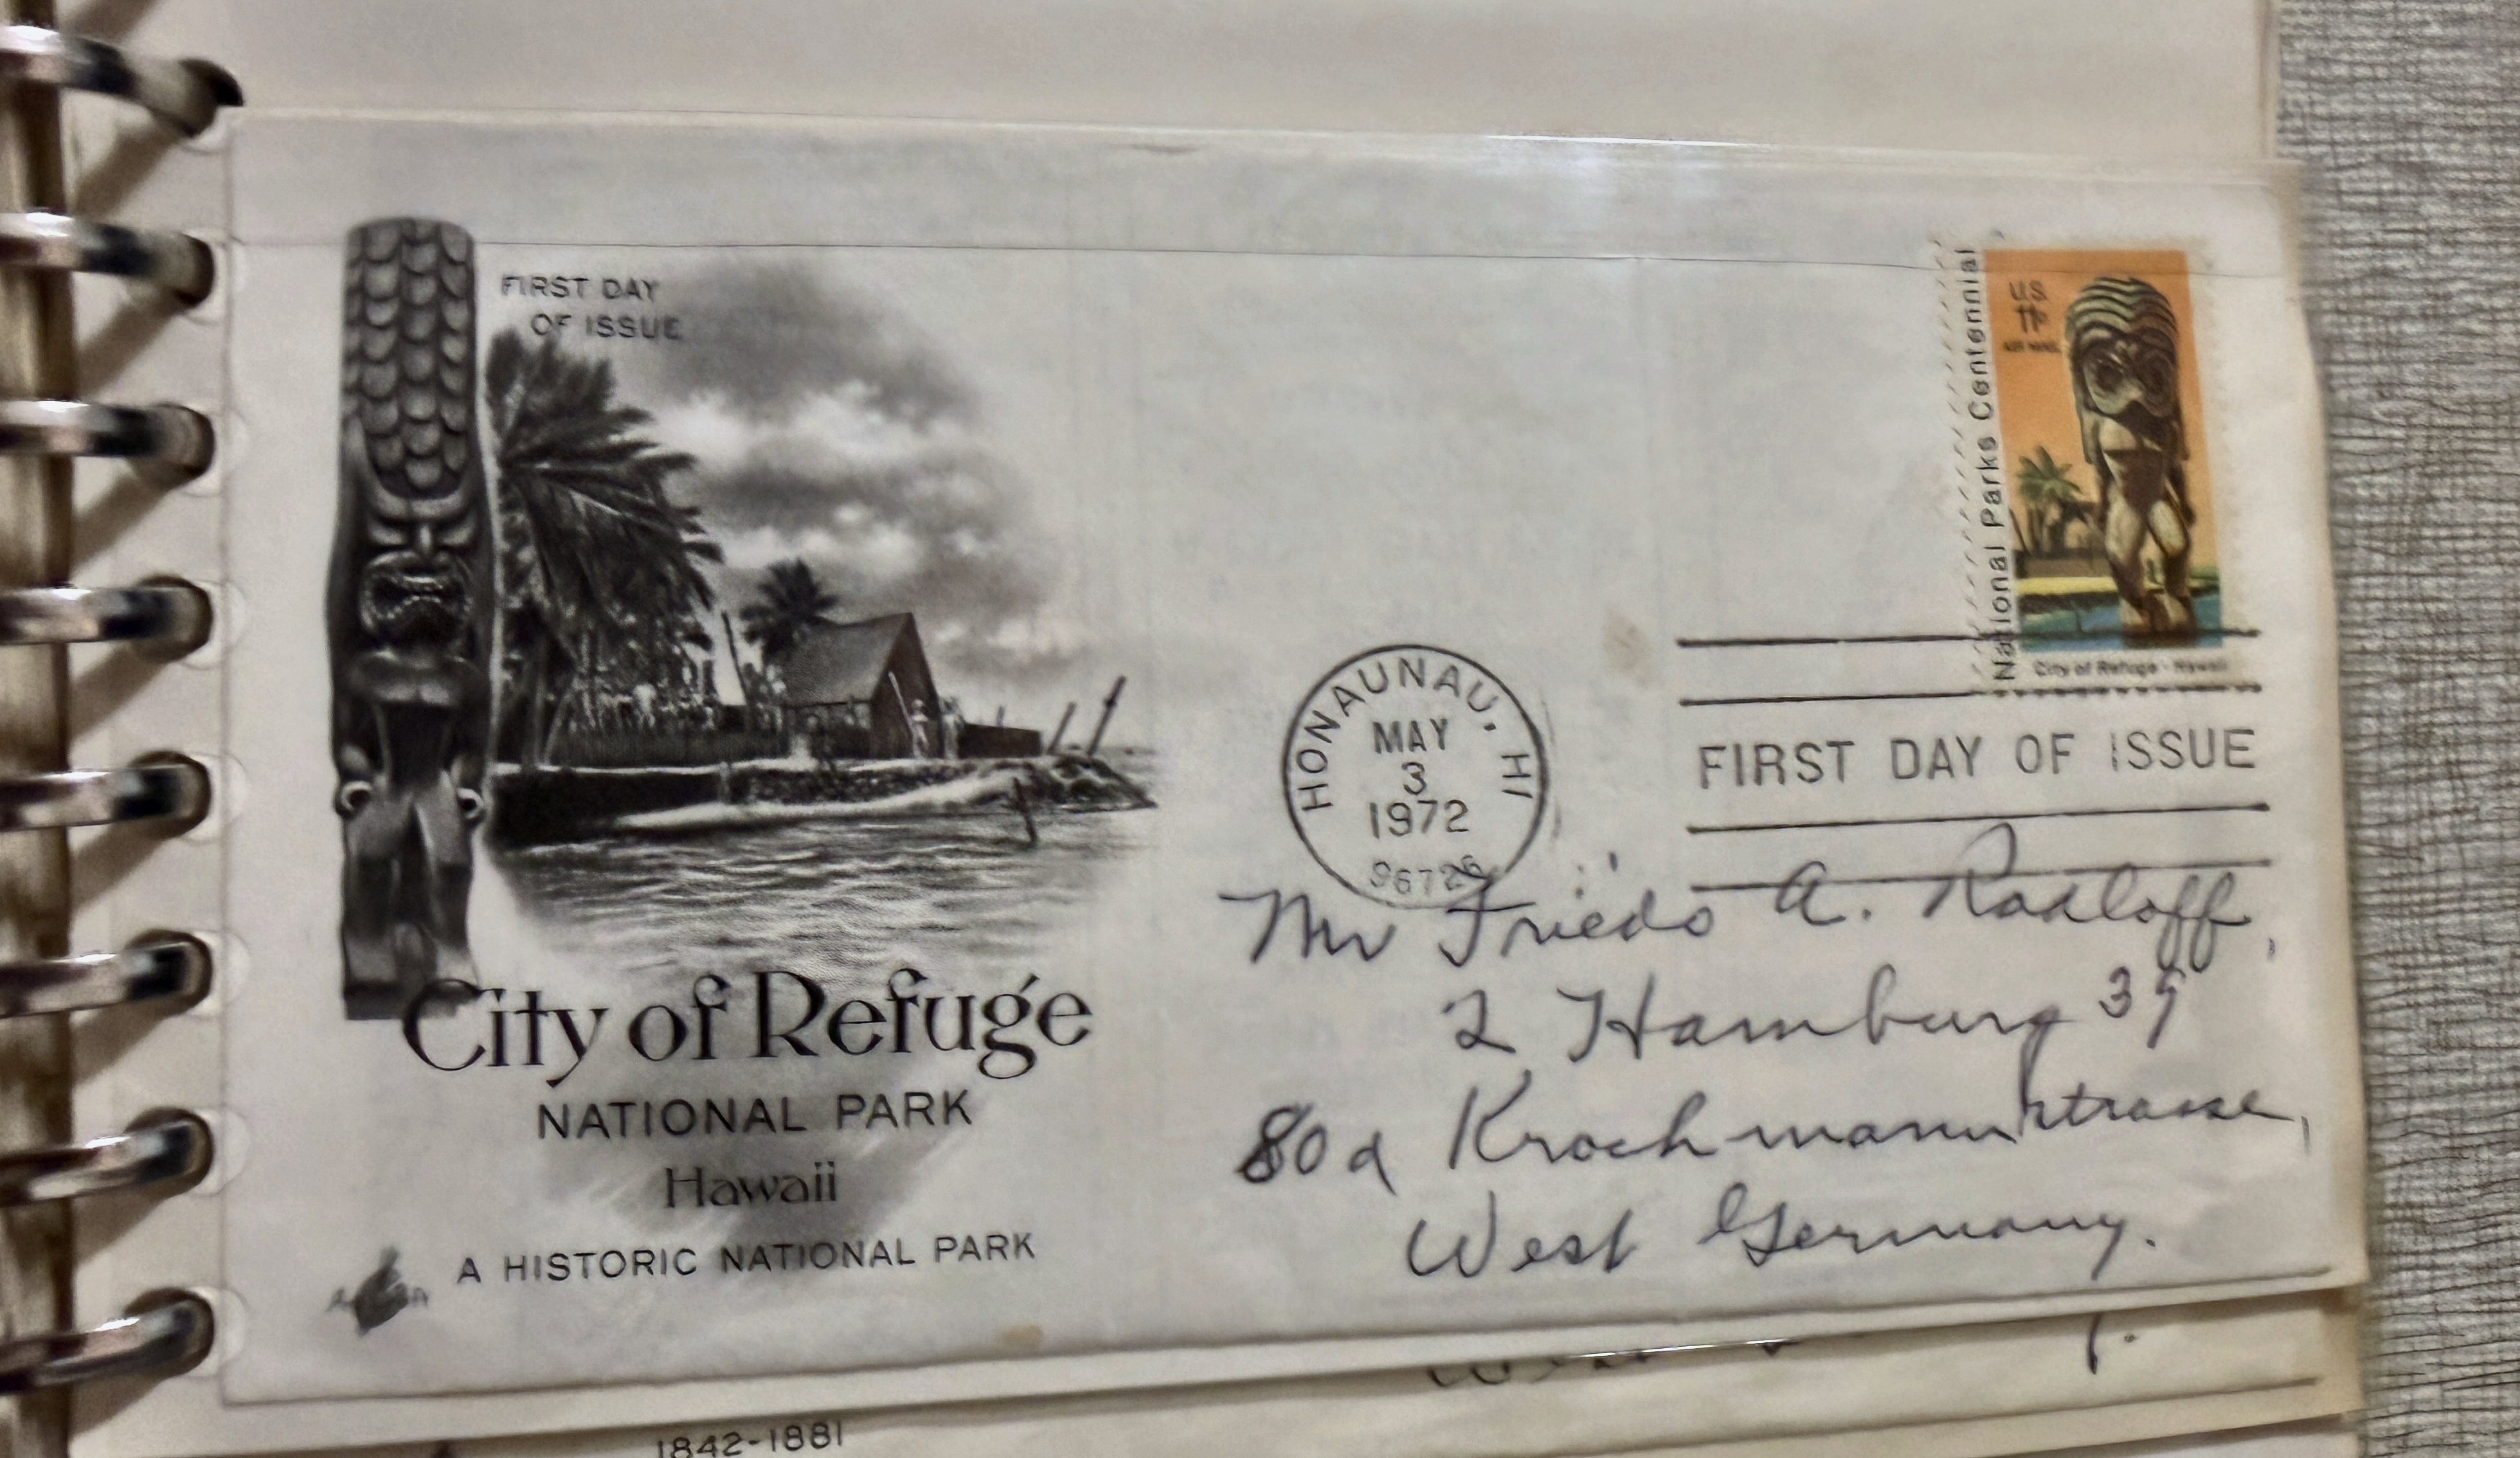 FIRST DAY
OF ISSUE
National Parks Centennial
U.S.
11¢
AIR MAIL
City of Refuge - Hawaii
HONAUNAU, HI
MAY
3
1972
96726
FIRST DAY OF ISSUE
Mr Friedo A. Radloff,
2 Hamburg 39
80a Krochmannstrasse,
West Germany.
City of Refuge
NATIONAL PARK
Hawaii
A HISTORIC NATIONAL PARK
1842-1881